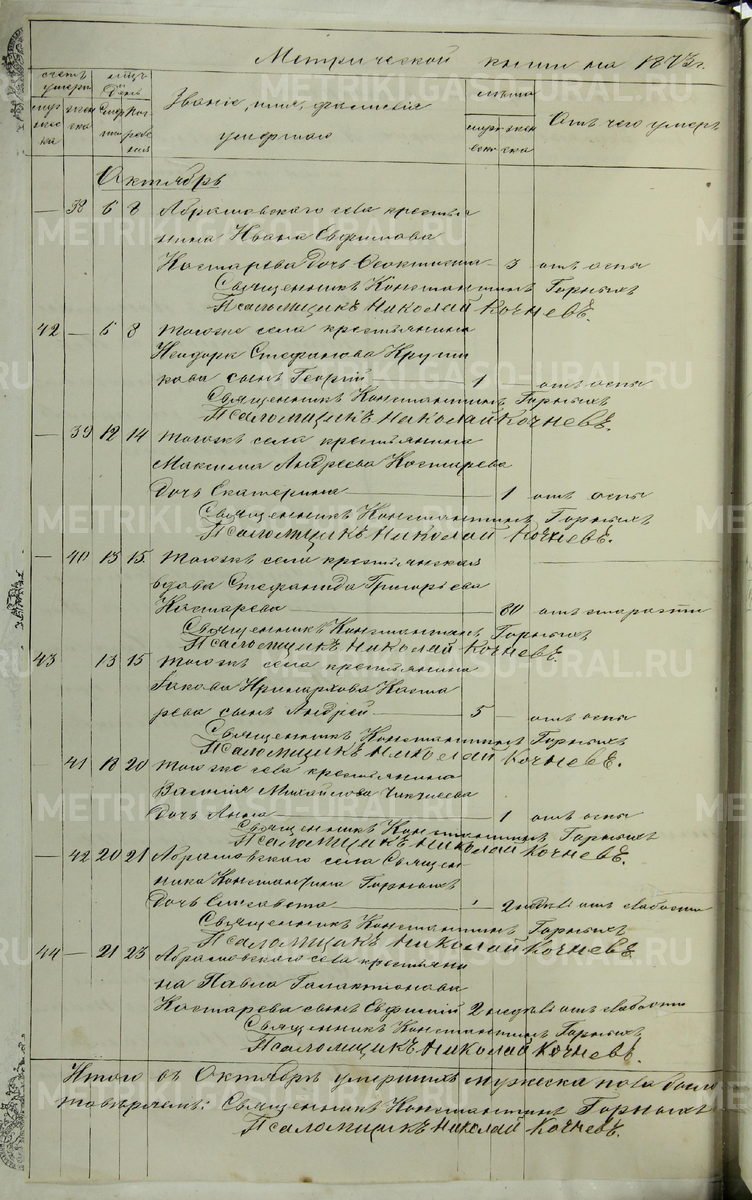 Метрической книги на 1873 г.
счетъ умерш. мужеска женска
День смерти погребенія
Званіе, имя, фамилія умершаго
лѣта мужеска женска
Отъ чего умеръ
Октябрь
— 38 6 8 Абрамовскаго села крестья
нина Ивана Евфимова
Костарева дочь Феоктиста — 3 отъ оспы
Священникъ Константинъ Горныхъ
Псаломщикъ Николай Кочневъ.
42 — 6 8 Тогоже села крестьянина
Стефанова
кова сынъ Георгій — 1 — отъ оспы
Священникъ Константинъ Горныхъ
Псаломщикъ Николай Кочневъ.
— 39 12 14 Тогожъ села крестьянина
Максима Андреева Костарева
Дочь Екатерина — 1 отъ оспы
Священникъ Константинъ Горныхъ
Псаломщикъ Николай Кочневъ.
— 40 13 15 Тогожъ села крестьянская
вдова Стефанида Григорьева
Костарева — 60 отъ старости
Священникъ Константинъ Горныхъ
Псаломщикъ Николай Кочневъ.
43 13 15 Тогожъ села крестьянина
Іакова Коста
рева сынъ Андрей — 5 — отъ оспы
Священникъ Константинъ Горныхъ
Псаломщикъ Николай Кочневъ.
41 18 20 Тогоже села крестьянина
Василія Михайлова
Дочь Анна — 1 отъ оспы
Священникъ Константинъ Горныхъ
Псаломщикъ Николай Кочневъ.
— 42 20 21 Абрамовскаго села Священ
ника Константина Горныхъ
Дочь Елисавета — 2 недѣли отъ слабости
Священникъ Константинъ Горныхъ
Псаломщикъ Николай Кочневъ.
44 — 21 23 Абрамовскаго села крестьяни
на Павла Галактіонова
Костарева сынъ Евфимій 2 недѣли отъ слабости
Священникъ Константинъ Горныхъ
Псаломщикъ Николай Кочневъ.
Итого въ Октябрѣ умершихъ мужеска пола было
Священникъ Константинъ Горныхъ
Псаломщикъ Николай Кочневъ.
METRIKI.GASO-URAL.RU